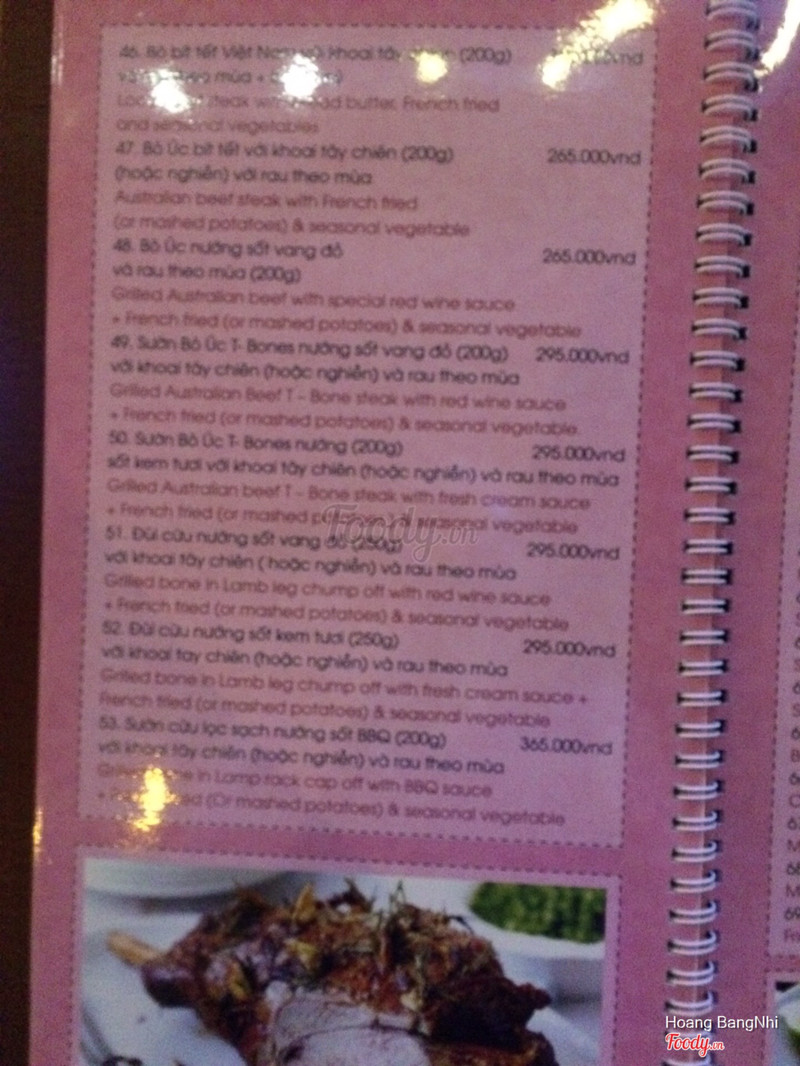 46. Bò bít tết Việt Nam khoai tây (200g)
theo mùa +
steak with butter, French fried
and seasonal vegetables
47. Bò Úc bít tết với khoai tây chiên (200g) 265.000vnd
(hoặc nghiền) với rau theo mùa
Australian beef steak with French fried
(or mashed potatoes) & seasonal vegetable
48. Bò Úc nướng sốt vang đỏ 265.000vnd
và rau theo mùa (200g)
Grilled Australian beef with special red wine sauce
+ French fried (or mashed potatoes) & seasonal vegetable
49. Sườn Bò Úc T- Bones nướng sốt vang đỏ (200g) 295.000vnd
với khoai tây chiên (hoặc nghiền) và rau theo mùa
Grilled Australian Beef T - Bone steak with red wine sauce
+ French fried (or mashed potatoes) & seasonal vegetable
50. Sườn Bò Úc T- Bones nướng (200g) 295.000vnd
sốt kem tươi với khoai tây chiên (hoặc nghiền) và rau theo mùa
Grilled Australian beef T - Bone steak with fresh cream sauce
+ French fried (or mashed seasonal vegetable
51. Đùi cừu nướng sốt vang đỏ (250g) 295.000vnd
với khoai tây chiên ( hoặc nghiền) và rau theo mùa
Grilled bone in Lamb leg chump off with red wine sauce
+ French fried (or mashed potatoes) & seasonal vegetable
52. Đùi cừu nướng sốt kem tươi (250g) 295.000vnd
với khoai tay chiên (hoặc nghiền) và rau theo mùa
Grilled bone in Lamb leg chump off with fresh cream sauce +
French fried (or mashed potatoes) & seasonal vegetable
53. Sườn cừu lọc sạch nướng sốt BBQ (200g) 365.000vnd
với khoai tây chiên (hoặc nghiền) và rau theo mùa
bone in Lamp rack cap off with BBQ sauce
+ (Or mashed potatoes) & seasonal vegetable
Foody.vn
Hoang BangNhi
Foody.vn